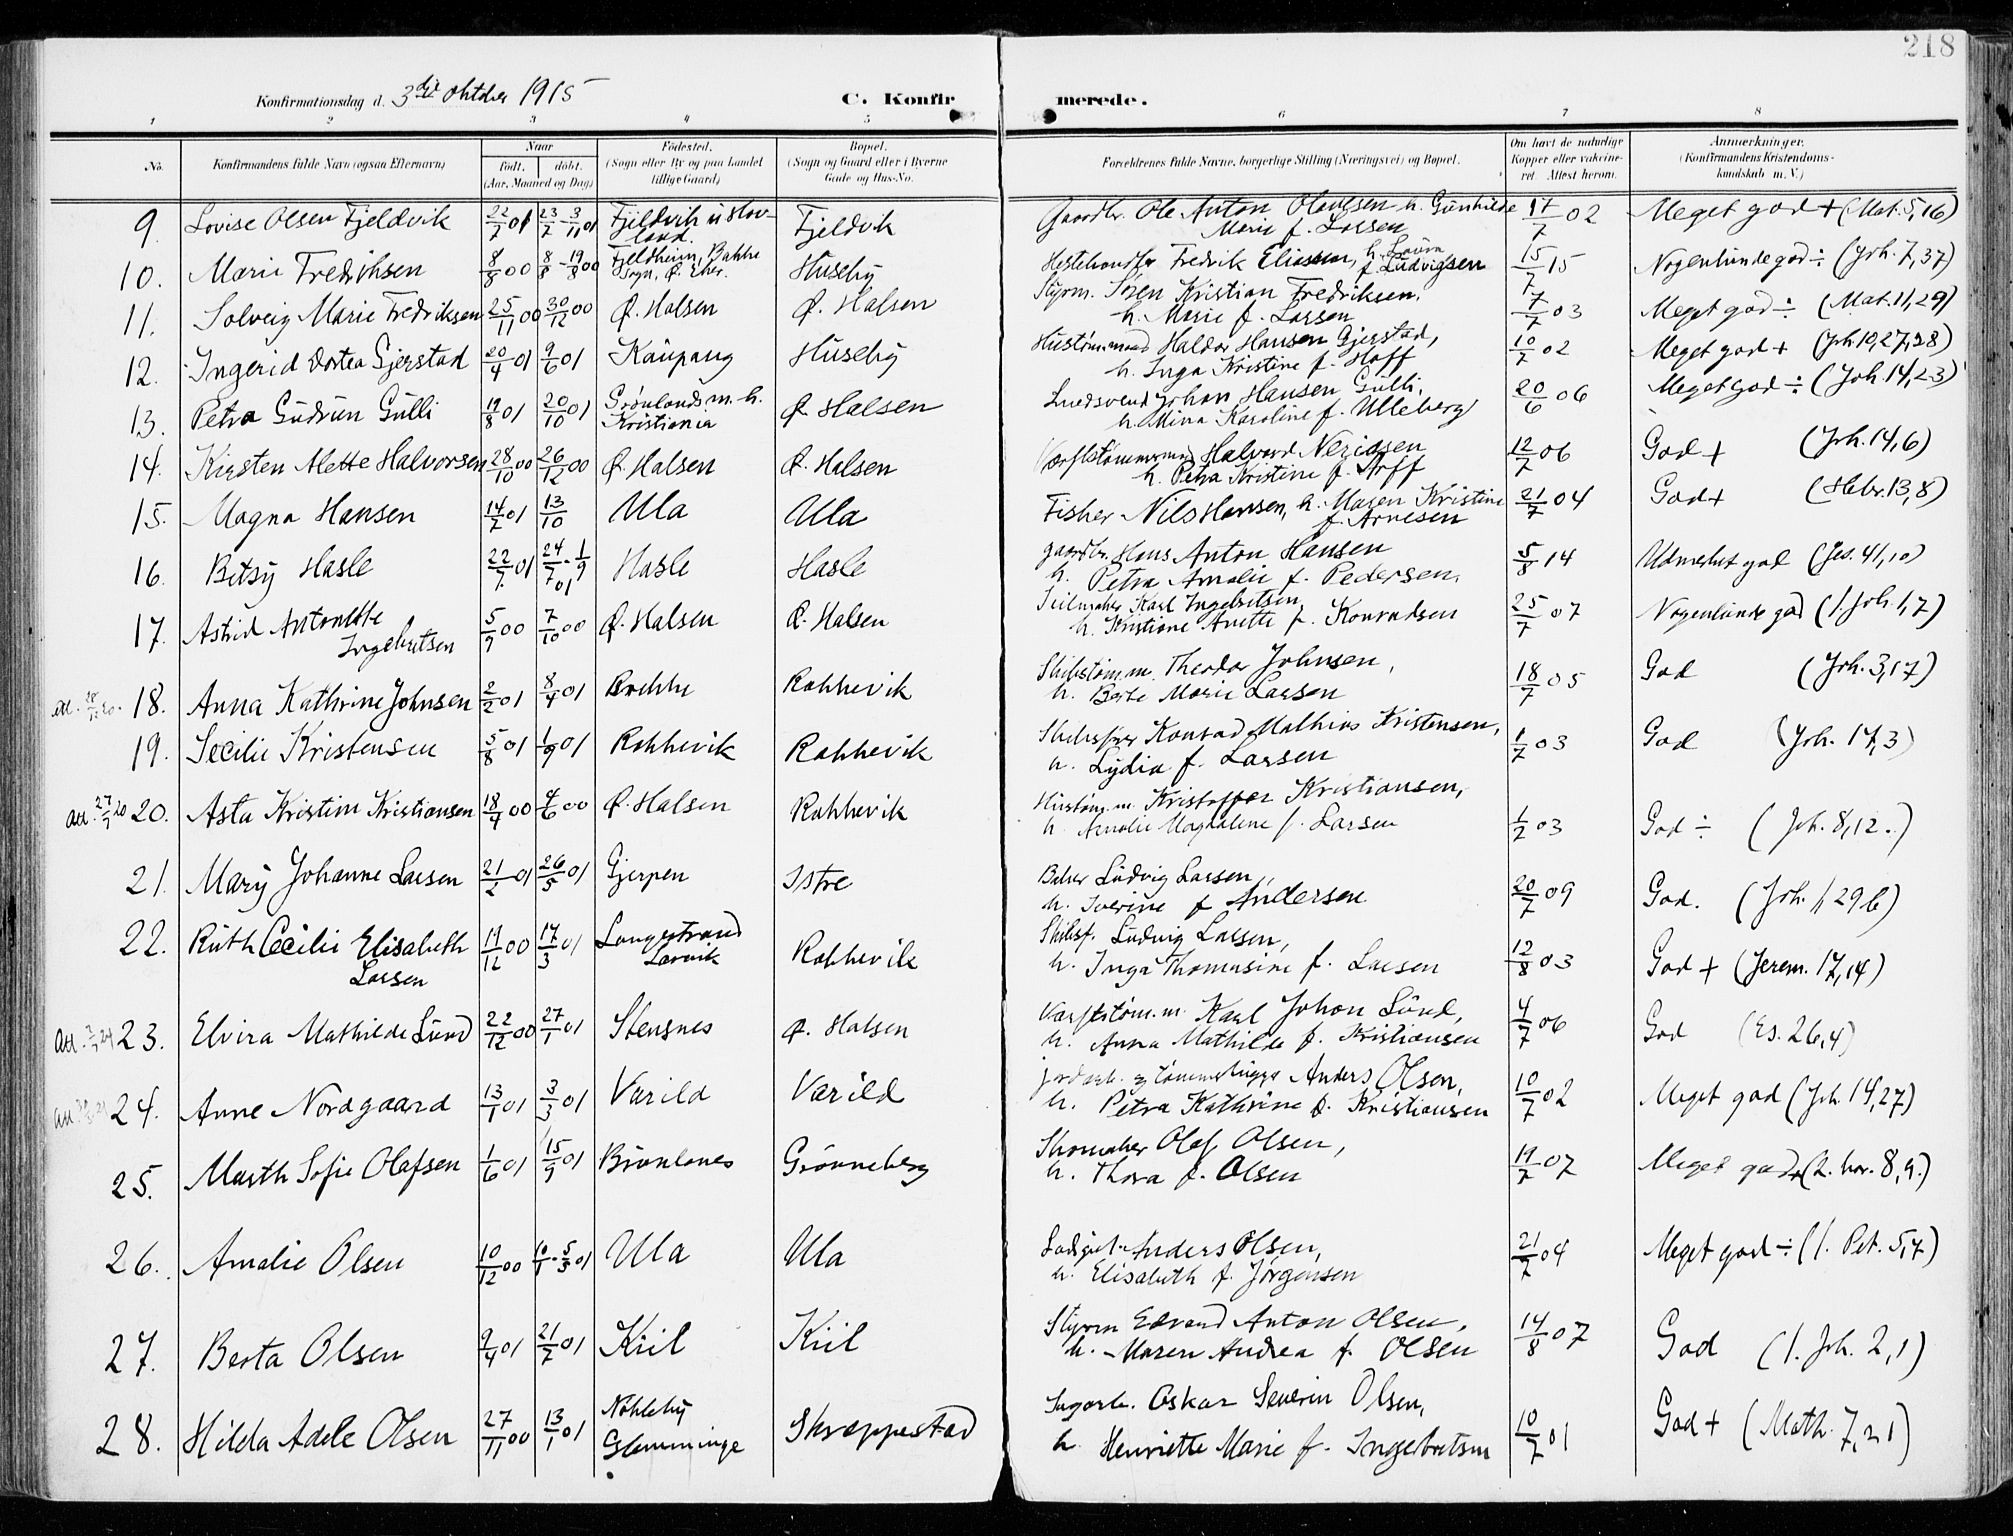 218
Konfirmationsdag d. 3die oktober 1915 C. Konfir merede.
1 2 3 4 5 6 7 8
No. Konfirmandens fulde Navn (ogsaa Efternavn) Naar født. døbt. (Aar, Maaned og Dag) Fødested. (Sogn eller By og paa Landet tillige Gaard) Bopæl. (Sogn og Gaard eller i Byerne Gade og Hus-No. Forældrenes fulde Navne, borgerlige Stilling (Næringsvei) og Bopæl. Om havt de naturlige Kopper eller vakcineret. Attest herom. Anmerkninger. (Konfirmandens Kristendomskundskab m. V.)
9. Lovise Olsen Fjeldvik 22/7 01 23/7 - 3/11 01 Fjeldvik Fjeldvik Gaardbr. Ole Anton Olausen h. Gunhilde 17/7 02 Meget god + (Mat. 5,16)
Marie f. Larsen
10. Marie Fredriksen 8/8 00 8/8 - 19/8 00 Fjeldheim, Bakke Huseby Hestehandler Fredrik Eliassen, h. Laura 15/7 15 Nogenlunde god ÷ (Joh. 7,37)
Sogn, Ø. Eker. f. Ludvigsen
11. Solveig Marie Fredriksen 25/11 00 30/12 00 Ø. Halsen Ø. Halsen Styrm. Søren Kristian Fredriksen, 7/7 03 Meget god ÷ (Mat. 11,29)
h. Marie f. Larsen
12. Ingerid Dortea Gjerstad 20/4 01 9/6 01 Kaupang Huseby Hustømmermand Haldor Hansen Gjerstad, 10/7 02 Meget god + (Joh 10,27,28)
h. Inga Kristine f. Hoff
13. Petra Gudrun Gulli 19/8 01 20/10 01 Grønlands m.h. Ø. Halsen Johan Hansen Gulli, 20/6 06 Meget god ÷ (Joh. 14,23)
Kristiania h. Mina Karoline f. Ulleberg
14. Kirsten Mette Halvorsen 28/10 00 26/12 00 Ø. Halsen Ø. Halsen Halvard Neridsen 12/7 06 God + (Joh. 14,6)
h. Petra Kristine f. Arff
15. Magna Hansen 14/7 01 13/10 Ula Ula Fisker Nils Hansen, h. Maren Kristine 21/7 04 God + (Hebr. 13,8)
f. Arnesen
16. Betsy Hasle 22/7 01 24/7 - 1/9 01 Hasle Hasle gaardbr. Hans Anton Hansen 5/8 14 Udmerket god (Jes. 41,10)
h. Petra Amalie f. Pedersen.
17. Astrid Antonette 5/9 00 7/10 00 Ø. Halsen Ø. Halsen Seilmaker Karl Ingebritsen 25/7 07 Nogenlunde god (1. Joh. 1,7)
Ingebritsen h. Kristiane Anette f. Konradsen
18. Anna Kathrine Johnsen 2/2 01 8/4 01 Brekke Rakkevik Skibstøm.m. Theodor Johnsen, 18/7 05 God (Joh. 3,17)
h. Berte Marie Larsen
19. Secilie Kristensen 5/8 01 1/9 01 Rakkevik Rakkevik Skibsfører Konrad Mathias Kristensen, 1/7 03 God (Joh. 17,3)
h. Lydia f. Larsen
Att. 27/7 20 20. Asta Kristine Kristiansen 18/4 00 4/6 00 Ø. Halsen Rakkevik Hustøm.m. Kristoffer Kristiansen, 1/7 03 God ÷ (Joh. 8,12.)
h. Amalie Magdalene f. Larsen
21. Mary Johanne Larsen 21/2 01 26/5 01 Gjerpen Istre Baker Ludvig Larsen, 20/7 09 God. (Joh. 1, 29 b)
h. Iverine f Andersen
22. Ruth Cecilie Elisabeth 19/12 00 17/3 01 Langestrand Rakkevik Skibsf. Ludvig Larsen, 12/8 03 God + (Jerem. 17,14)
Larsen Larvik h. Inga Thomasine f. Larsen
Att. 23. Elvira Mathilde Lund 22/12 00 27/1 01 Stensnes Ø. Halsen Værftstøm.m. Karl Johan Lund, 4/7 06 God (Es. 26,4)
h. Anna Mathilde f. Kristiansen
24. Anne Nordgaard 13/1 01 3/3 01 Varild Varild jordarb. og tømmerhugger Anders Olsen, 10/7 02 Meget god (Joh. 14,27)
h. Petra Kathrine f. Kristiansen
25. Marth Sofie Olafsen 1/6 01 15/9 01 Brønlanes Grønneberg Skomaker Olaf Olsen, 19/7 07 Meget god + (2. kor. 8,9.)
h. Thora f. Olsen
26. Amalie Olsen 10/12 00 10/1 - 5/5 01 Ula Ula Anders Olsen, 21/7 04 Meget god ÷ (1. Pet. 5,7)
h. Elisabeth f. Jørgensen
27. Berta Olsen 9/4 01 21/7 01 Kiil Kiil Styrm Edvard Anton Olsen, 14/8 07 God (1. Joh. 2,1)
h. Maren Andrea f. Olsen
28. Hilda Adele Olsen 27/11 00 13/1 01 Nakleby Skræppestad Sagarb. Oskar Severin Olsen, 10/7 01 God + (Math. 7,21)
Glemminge h. Henriette Marie f. Ingebretsen